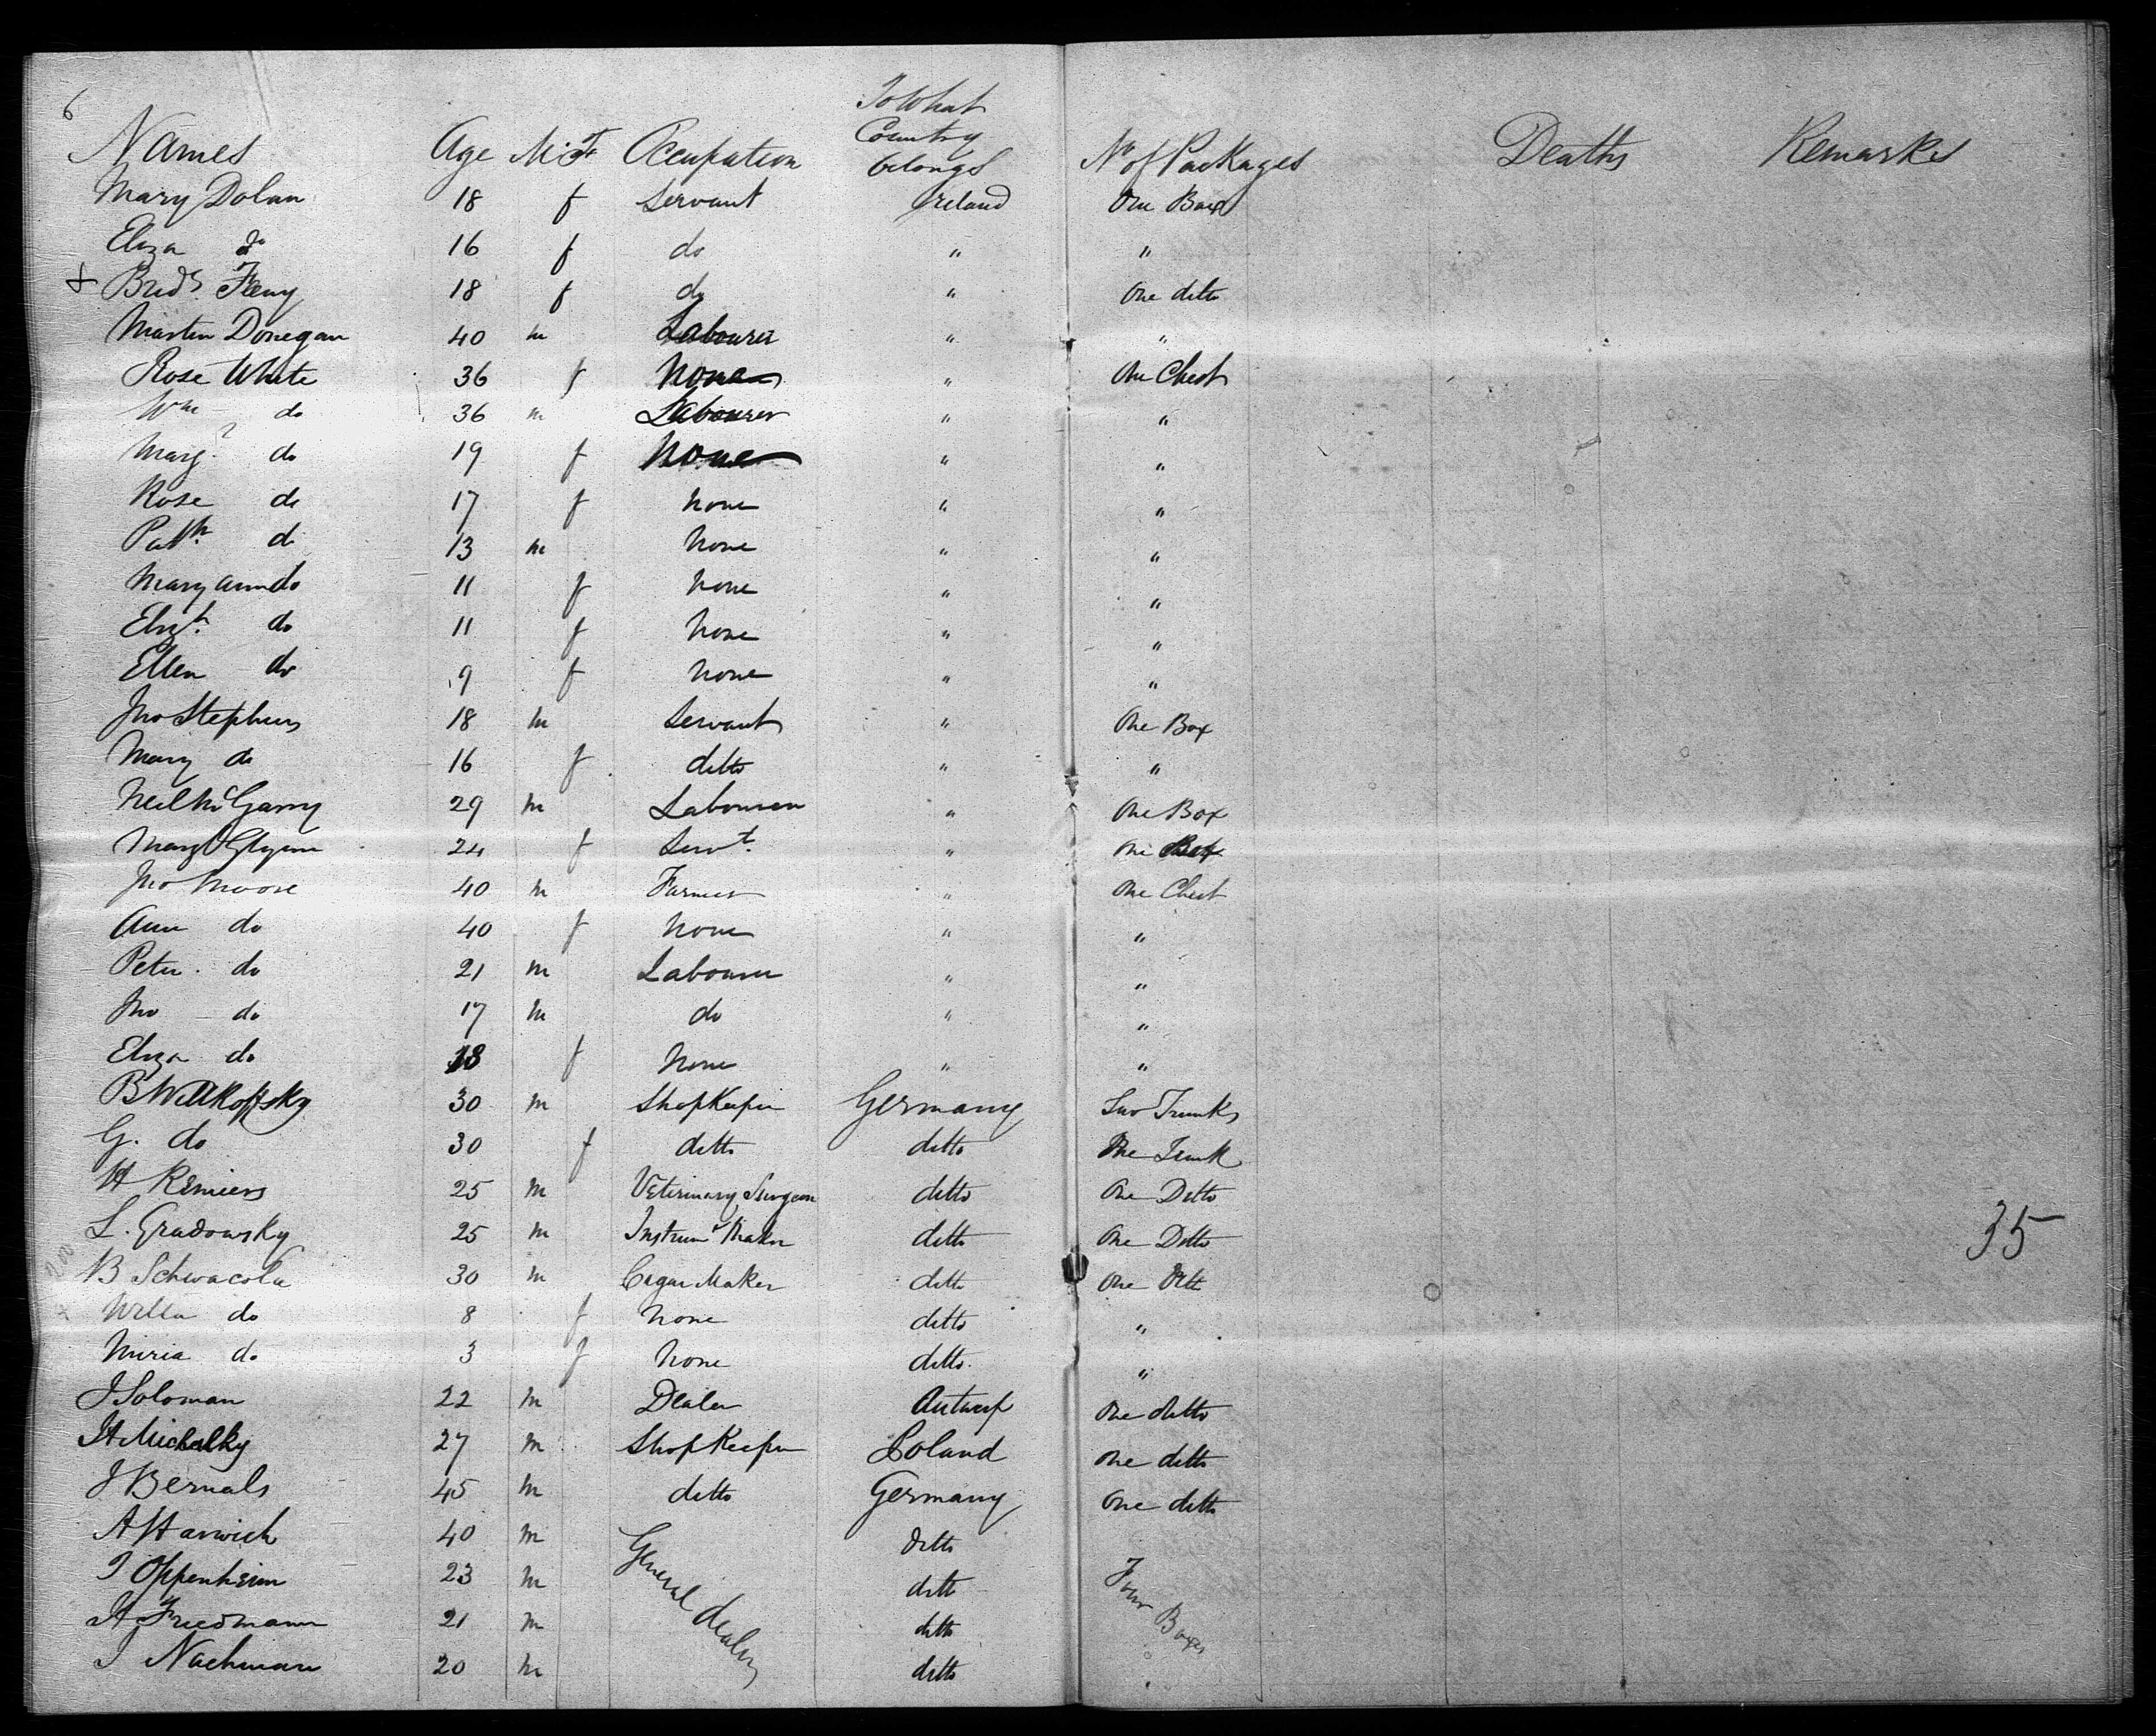 6
Names Age M & F Occupation To What Country belongs No of Packages Deaths Remarks
Mary Dolan 18 f Servant Ireland One Box
Eliza do 16 f do " "
+ Brid.t 18 f do " One ditto
Martin Donegan 40 m Labourer " "
Rose White 36 f None " One Chest
Wm do 36 m Labourer " "
Marg.t do 19 f None " "
Rose do 17 f None " "
Patk. do 13 m None " "
Mary Ann do 11 f None " "
Elizth. do 11 f None " "
Ellen do 9 f None " "
Jno Stephens 18 m Servant " One Box
Mary do 16 f ditto " "
Neil McGarry 29 m Labourer " One Box
Mary Glynn 24 f Servt. " One
Jno Moore 40 m Farmer " One Chest
Ann do 40 f None " "
Peter do 21 m Labourer " "
Jno do 17 m do " "
Eliza do 18 f None " "
B Wilkoffsky 30 m Shopkeeper Germany Two Trunks
G. do 30 f ditto ditto One Trunk
H Remiers 25 m Veterinary Surgeon ditto One Ditto
L. Gradowsky 25 m Instrumt Maker ditto One Ditto
B Schwacola 30 m Cigar Maker ditto One Ditto
Willa do 8 f None ditto "
Miria do 3 f None ditto "
J Soloman 22 m Dealer Antwerp One ditto
H Michalky 27 m Shopkeeper Poland One ditto
J Bernals 45 m ditto Germany One ditto
A Harwich 40 m General dealers ditto Four Boxes
I Oppenheim 23 m ditto
A Friedmann 21 m ditto
I Nachman 20 m ditto
35